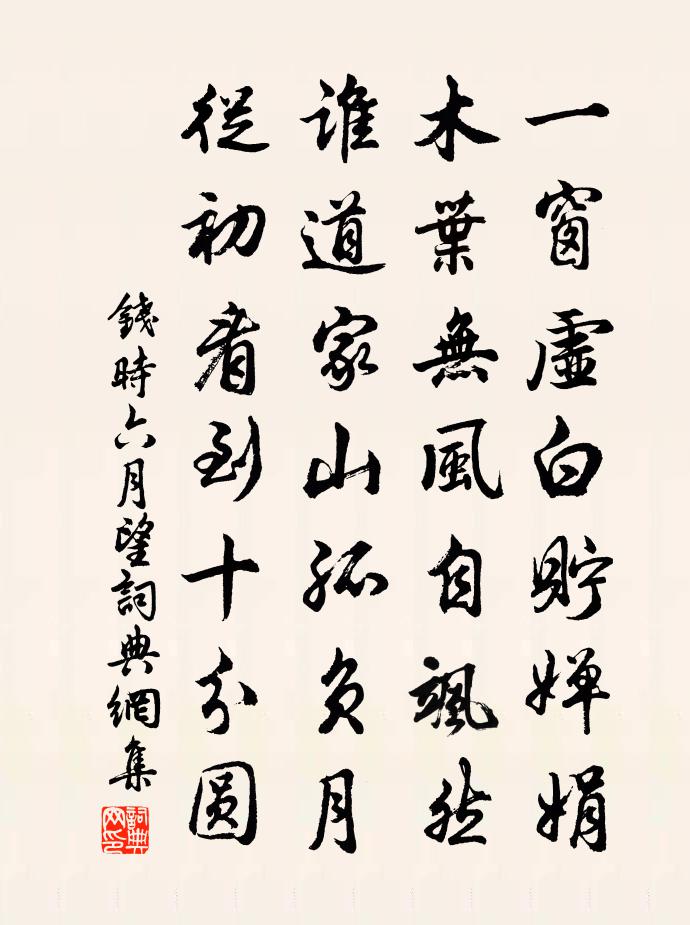 一窗虛白貯嬋娟
木葉無風自颯然
誰道家山孤負月
從初看到十分圓
錢時六月望詞典網集
詞典
网印